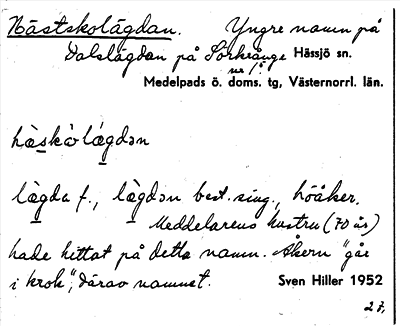 Hästskolägdan. Yngre namn på
Dalslägdan på Sörkrånge Hässjö sn.
nr 1.
Medelpads ö. doms. tg, Västernorrl. län.
hä̀skólä̀gdən
lä̀gda f., lä̀gdən best. sing., höåker.
Meddelarens hustru (70 år)
hade hittat på detta namn. Åkern "går
i krok", därav namnet. Sven Hiller 1952
27.